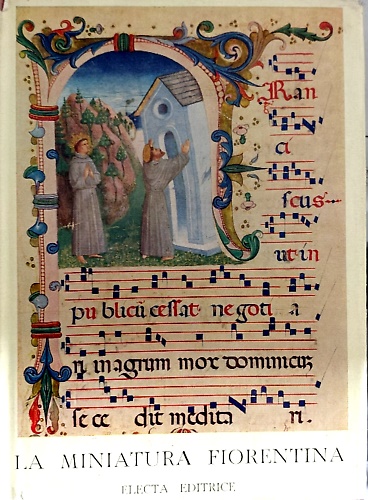 Fran
ci
scus
ut in
publicū cessat negoti a
ri in agrum mox dominicuz
se ce dit medita ri.
LA MINIATURA FIORENTINA
ELECTA EDITRICE